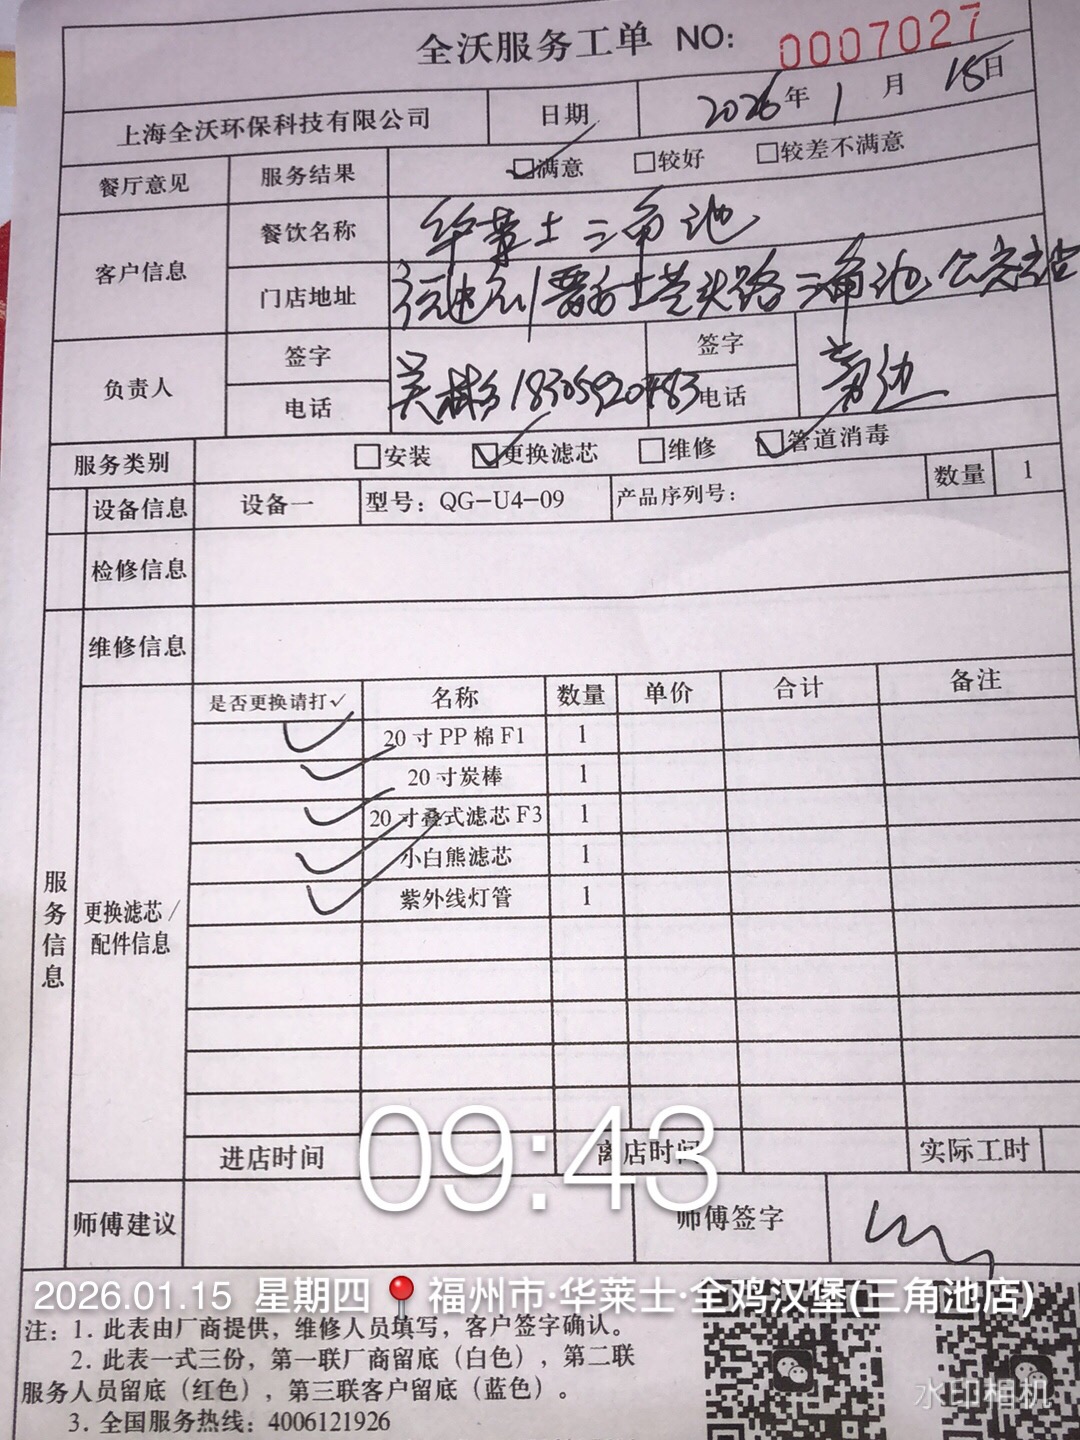 全沃服务工单 NO: 0007027
上海全沃环保科技有限公司 日期 2026年1月15日
餐厅意见 服务结果 ☑满意 □较好 □较差不满意
客户信息 餐饮名称 华莱士三角池
门店地址 路三角池公交站
负责人 签字 吴 签字
电话 18305920483 电话
服务类别 □安装 ☑更换滤芯 □维修 ☑管道消毒
设备信息 设备一 型号：QG-U4-09 产品序列号： 数量 1
检修信息
维修信息
服务信息
更换滤芯/配件信息
是否更换请打✓ 名称 数量 单价 合计 备注
✓ 20寸PP棉F1 1
✓ 20寸炭棒 1
✓ 20寸叠式滤芯F3 1
✓ 小白熊滤芯 1
✓ 紫外线灯管 1
进店时间 离店时间 实际工时
09:43
师傅建议 师傅签字
2026.01.15 星期四 福州市·华莱士·全鸡汉堡(三角池店)
注：1. 此表由厂商提供，维修人员填写，客户签字确认。
2. 此表一式三份，第一联厂商留底（白色），第二联
服务人员留底（红色），第三联客户留底（蓝色）。
3. 全国服务热线：4006121926
水印相机